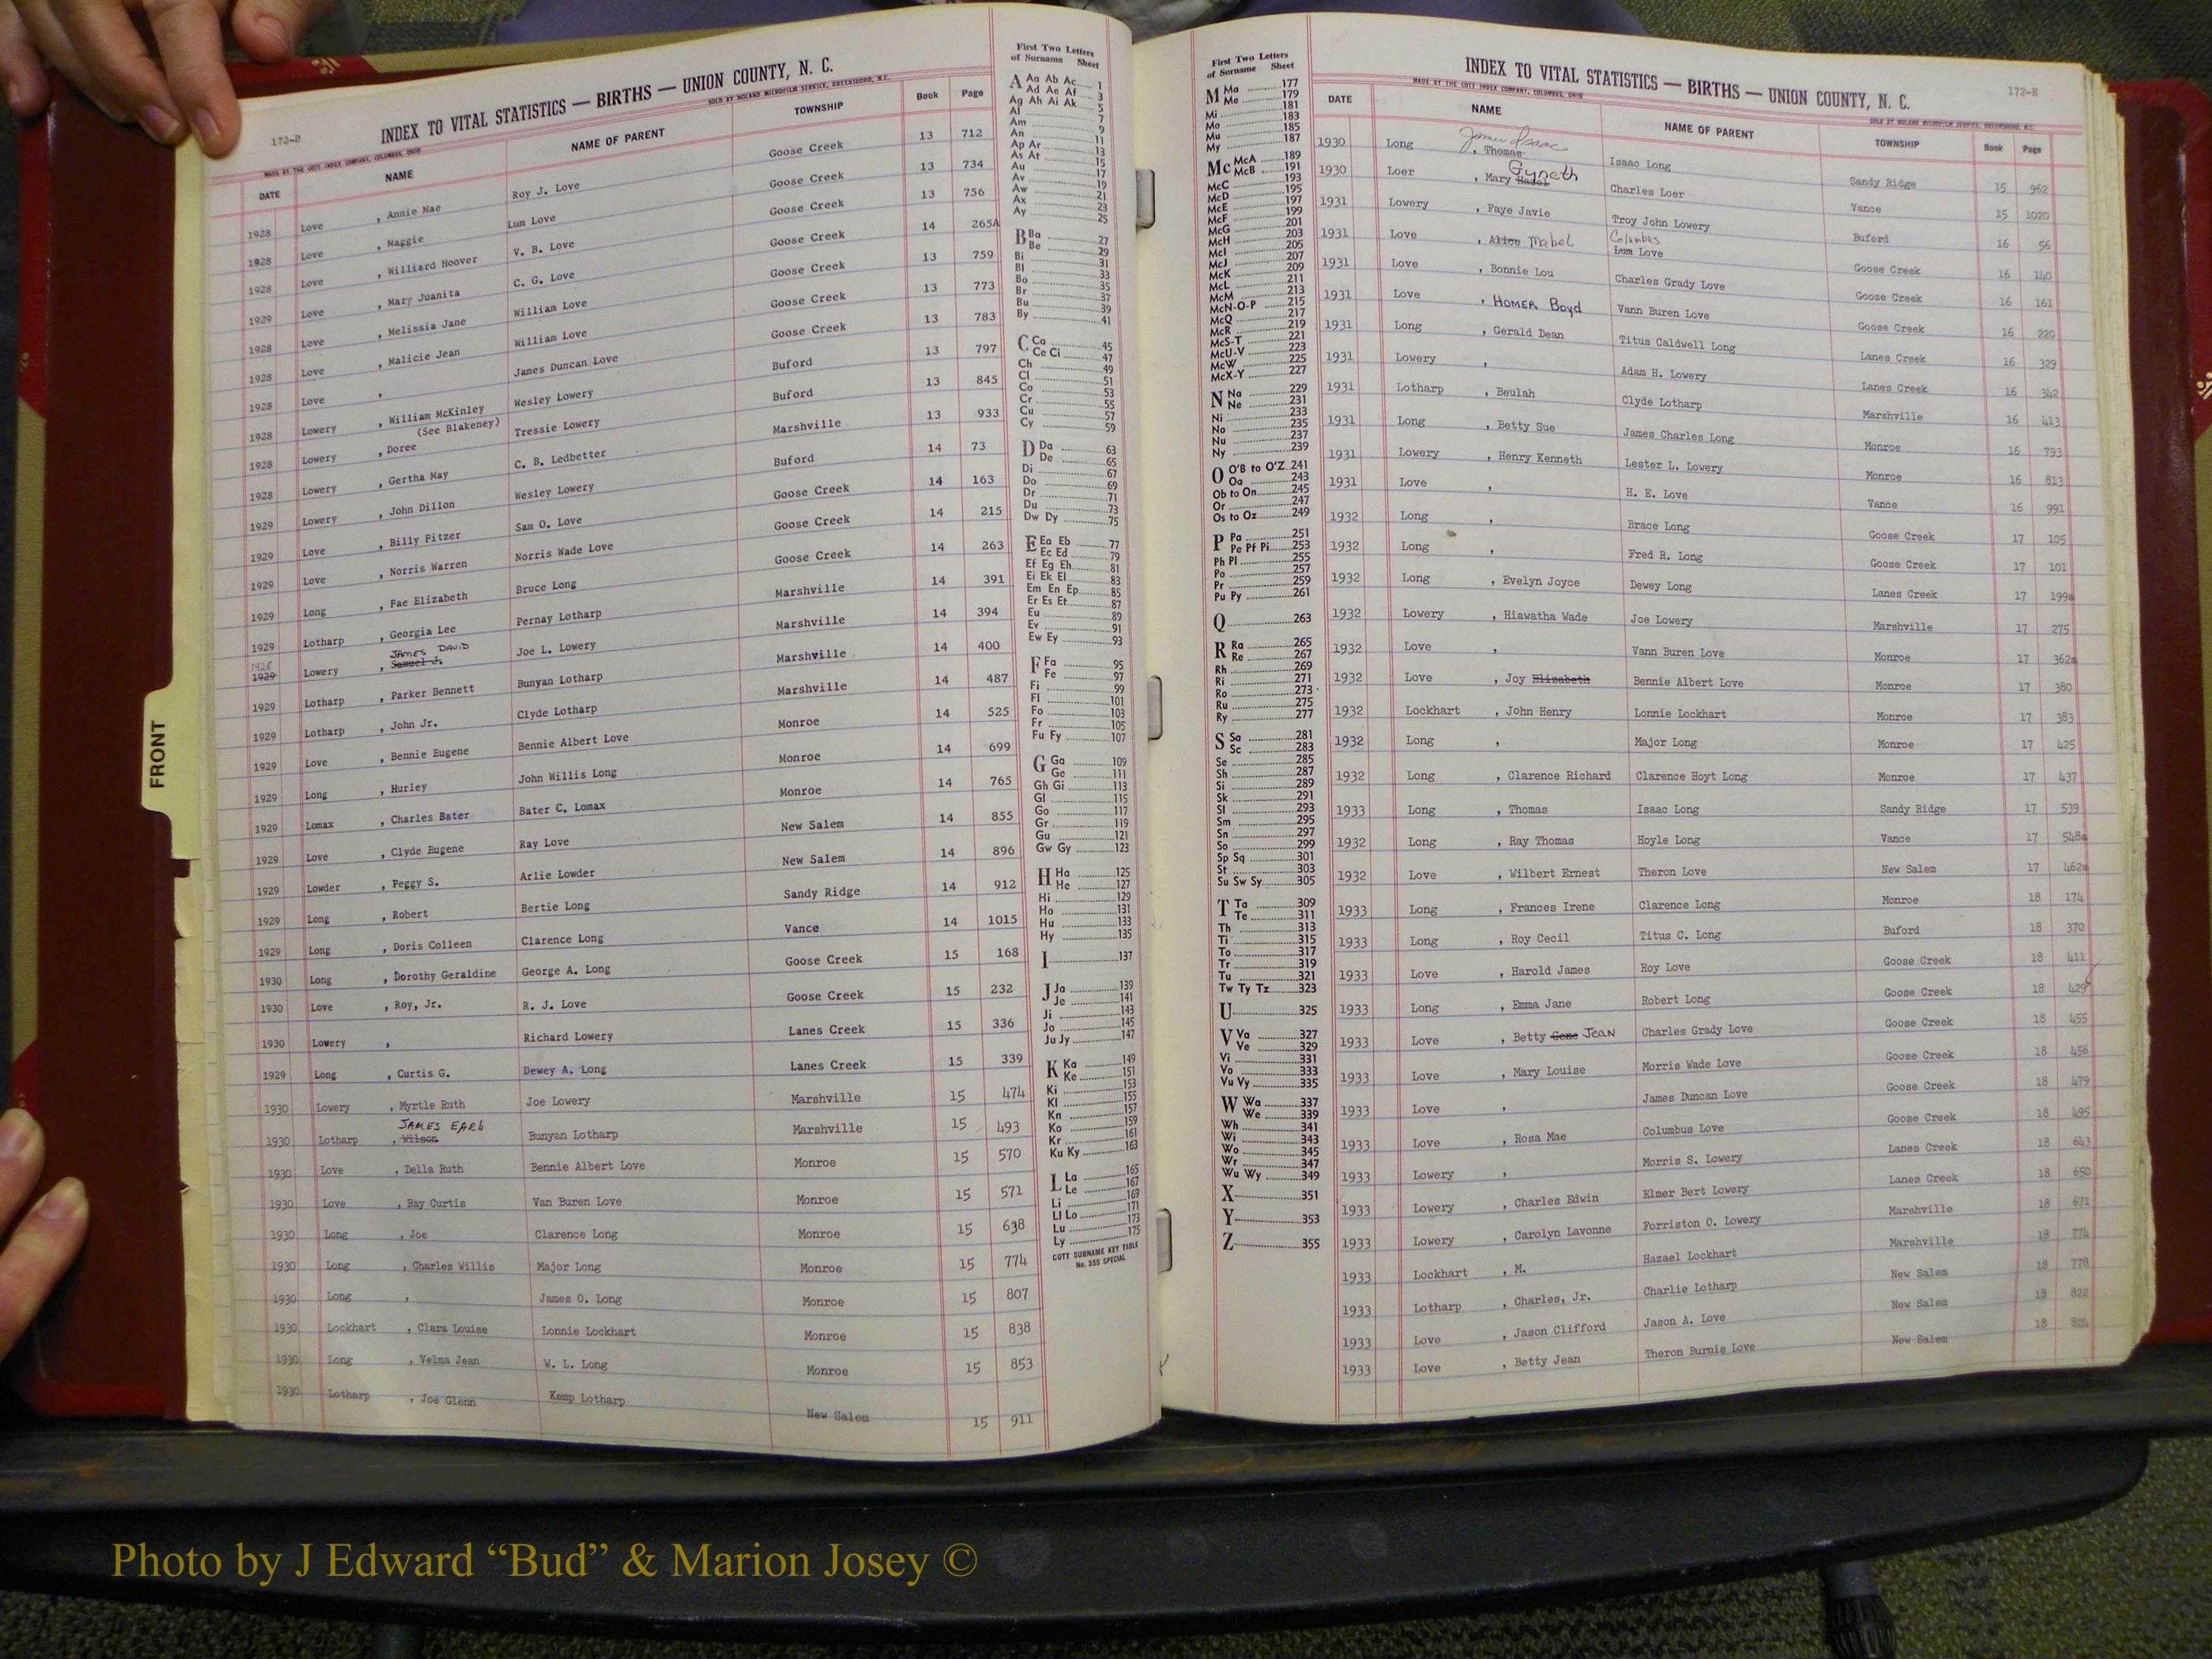 172-D
INDEX TO VITAL STATISTICS — BIRTHS — UNION COUNTY, N. C.
MADE BY THE COTT INDEX COMPANY, COLUMBUS, OHIO SOLD BY NOLAND MICROFILM SERVICE, GREENSBORO, N.C.
DATE NAME NAME OF PARENT TOWNSHIP Book Page
1928 Love , Annie Mae Roy J. Love Goose Creek 13 712
1928 Love , Maggie Lum Love Goose Creek 13 734
1928 Love , Williard Hoover V. B. Love Goose Creek 13 756
1929 Love , Mary Juanita C. G. Love Goose Creek 14 265A
1928 Love , Melissia Jane William Love Goose Creek 13 759
1928 Love , Malicie Jean William Love Goose Creek 13 773
1928 Love , James Duncan Love Goose Creek 13 783
1928 Lowery , William McKinley Wesley Lowery Buford 13 797
(See Blakeney)
1928 Lowery , Doree Tressie Lowery Buford 13 845
1928 Lowery , Gertha May C. B. Ledbetter Marshville 13 933
1929 Lowery , John Dillon Wesley Lowery Buford 14 73
1929 Love , Billy Fitzer Sam O. Love Goose Creek 14 163
1929 Love , Norris Warren Norris Wade Love Goose Creek 14 215
1929 Long , Fae Elizabeth Bruce Long Goose Creek 14 263
1929 Lotharp , Georgia Lee Pernay Lotharp Marshville 14 391
JAMES DAVID
1929 Lowery , Samuel J. Joe L. Lowery Marshville 14 394
1929 Lotharp , Parker Bennett Bunyan Lotharp Marshville 14 400
1929 Lotharp , John Jr. Clyde Lotharp Marshville 14 487
1929 Love , Bennie Eugene Bennie Albert Love Monroe 14 525
1929 Long , Hurley John Willis Long Monroe 14 699
1929 Lomax , Charles Bater Bater C. Lomax Monroe 14 765
1929 Love , Clyde Eugene Ray Love New Salem 14 855
1929 Lowder , Peggy S. Arlie Lowder New Salem 14 896
1929 Long , Robert Bertie Long Sandy Ridge 14 912
1929 Long , Doris Colleen Clarence Long Vance 14 1015
1930 Long , Dorothy Geraldine George A. Long Goose Creek 15 168
1930 Love , Roy, Jr. R. J. Love Goose Creek 15 232
1930 Lowery , Richard Lowery Lanes Creek 15 336
1929 Long , Curtis G. Dewey A. Long Lanes Creek 15 339
1930 Lowery , Myrtle Ruth Joe Lowery Marshville 15 474
JAMES EARL
1930 Lotharp , Wilson Bunyan Lotharp Marshville 15 493
1930 Love , Della Ruth Bennie Albert Love Monroe 15 570
1930 Love , Ray Curtis Van Buren Love Monroe 15 571
1930 Long , Joe Clarence Long Monroe 15 638
1930 Long , Charles Willis Major Long Monroe 15 774
1930 Long , James O. Long Monroe 15 807
1930 Lockhart , Clara Louise Lonnie Lockhart Monroe 15 838
1930 Long , Velma Jean W. L. Long Monroe 15 853
1930 Lotharp , Joe Glenn Kemp Lotharp New Salem 15 911
FRONT
First Two Letters
of Surname Sheet
A Aa Ab Ac 1
Ad Ae Af 3
Ag Ah Ai Ak 5
Al 7
Am 9
An 11
Ap Ar 13
As At 15
Au 17
Av 19
Aw 21
Ax 23
Ay 25
B Ba 27
Be 29
Bi 31
Bl 33
Bo 35
Br 37
Bu 39
By 41
C Ca 45
Ce Ci 47
Ch 49
Cl 51
Co 53
Cr 55
Cu 57
Cy 59
D Da 63
De 65
Di 67
Do 69
Dr 71
Du 73
Dw Dy 75
E Ea Eb 77
Ec Ed 79
Ef Eg Eh 81
Ei Ek El 83
Em En Ep 85
Er Es Et 87
Eu 89
Ev 91
Ew Ey 93
F Fa 95
Fe 97
Fi 99
Fl 101
Fo 103
Fr 105
Fu Fy 107
G Ga 109
Ge 111
Gh Gi 113
Gl 115
Go 117
Gr 119
Gu 121
Gw Gy 123
H Ha 125
He 127
Hi 129
Ho 131
Hu 133
Hy 135
I 137
J Ja 139
Je 141
Ji 143
Jo 145
Ju Jy 147
K Ka 149
Ke 151
Ki 153
Kl 155
Kn 157
Ko 159
Kr 161
Ku Ky 163
L La 165
Le 167
Li 169
Ll Lo 171
Lu 173
Ly 175
COTT SURNAME KEY TABLE
No. 355 SPECIAL
First Two Letters
of Surname Sheet
M Ma 177
Me 179
Mi 181
Mo 183
Mu 185
My 187
Mc McA 189
McB 191
McC 193
McD 195
McE 197
McF 199
McG 201
McH 203
McI 205
McJ 207
McK 209
McL 211
McM 213
McN-O-P 215
McQ 217
McR 219
McS-T 221
McU-V 223
McW 225
McX-Y 227
N Na 229
Ne 231
Ni 233
No 235
Nu 237
Ny 239
O O'B to O'Z 241
Oa 243
Ob to On 245
Or 247
Os to Oz 249
P Pa 251
Pe Pf Pi 253
Ph Pl 255
Po 257
Pr 259
Pu Py 261
Q 263
R Ra 265
Re 267
Rh 269
Ri 271
Ro 273
Ru 275
Ry 277
S Sa 281
Sc 283
Se 285
Sh 287
Si 289
Sk 291
Sl 293
Sm 295
Sn 297
So 299
Sp Sq 301
St 303
Su Sw Sy 305
T Ta 309
Te 311
Th 313
Ti 315
To 317
Tr 319
Tu 321
Tw Ty Tz 323
U 325
V Va 327
Ve 329
Vi 331
Vo 333
Vu Vy 335
W Wa 337
We 339
Wh 341
Wi 343
Wo 345
Wr 347
Wu Wy 349
X 351
Y 353
Z 355
172-E
INDEX TO VITAL STATISTICS — BIRTHS — UNION COUNTY, N. C.
MADE BY THE COTT INDEX COMPANY, COLUMBUS, OHIO SOLD BY NOLAND MICROFILM SERVICE, GREENSBORO, N.C.
DATE NAME NAME OF PARENT TOWNSHIP Book Page
James Isaac
1930 Long , Thomas Isaac Long Sandy Ridge 15 962
Gyneth
1930 Loer , Mary Hazel Charles Loer Vance 15 1020
1931 Lowery , Faye Javie Troy John Lowery Buford 16 56
Columbus
1931 Love , Alice Mabel Lum Love Goose Creek 16 140
1931 Love , Bonnie Lou Charles Grady Love Goose Creek 16 161
1931 Love , HOMER Boyd Vann Buren Love Goose Creek 16 220
1931 Long , Gerald Dean Titus Caldwell Long Lanes Creek 16 329
1931 Lowery , Adam H. Lowery Lanes Creek 16 342
1931 Lotharp , Beulah Clyde Lotharp Marshville 16 413
1931 Long , Betty Sue James Charles Long Monroe 16 793
1931 Lowery , Henry Kenneth Lester L. Lowery Monroe 16 813
1931 Love , H. E. Love Vance 16 991
1932 Long , Brace Long Goose Creek 17 105
1932 Long , Fred R. Long Goose Creek 17 101
1932 Long , Evelyn Joyce Dewey Long Lanes Creek 17 199a
1932 Lowery , Hiawatha Wade Joe Lowery Marshville 17 275
1932 Love , Vann Buren Love Monroe 17 362a
1932 Love , Joy Elizabeth Bennie Albert Love Monroe 17 380
1932 Lockhart , John Henry Lonnie Lockhart Monroe 17 383
1932 Long , Major Long Monroe 17 425
1932 Long , Clarence Richard Clarence Hoyt Long Monroe 17 437
1933 Long , Thomas Isaac Long Sandy Ridge 17 539
1932 Long , Ray Thomas Hoyle Long Vance 17 548a
1932 Love , Wilbert Ernest Theron Love New Salem 17 462a
1933 Long , Frances Irene Clarence Long Monroe 18 174
1933 Long , Roy Cecil Titus C. Long Buford 18 370
1933 Love , Harold James Roy Love Goose Creek 18 411
1933 Long , Emma Jane Robert Long Goose Creek 18 429
1933 Love , Betty Gene JEAN Charles Grady Love Goose Creek 18 455
1933 Love , Mary Louise Morris Wade Love Goose Creek 18 456
1933 Love , James Duncan Love Goose Creek 18 479
1933 Love , Rosa Mae Columbus Love Goose Creek 18 495
1933 Lowery , Morris S. Lowery Lanes Creek 18 643
1933 Lowery , Charles Edwin Elmer Bert Lowery Lanes Creek 18 650
1933 Lowery , Carolyn Lavonne Forriston O. Lowery Marshville 18 671
1933 Lockhart , M. Hazael Lockhart Marshville 18 774
1933 Lotharp , Charles, Jr. Charlie Lotharp New Salem 18 778
1933 Love , Jason Clifford Jason A. Love New Salem 18 822
1933 Love , Betty Jean Theron Burnie Love New Salem 18 824
Photo by J Edward “Bud” & Marion Josey ©